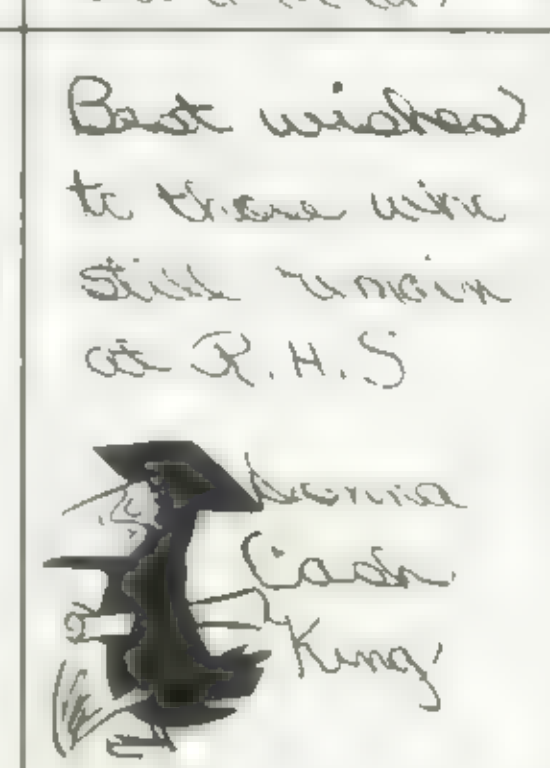 Best wishes
to those who
still remain
at R.H.S
Donna
Cash
King